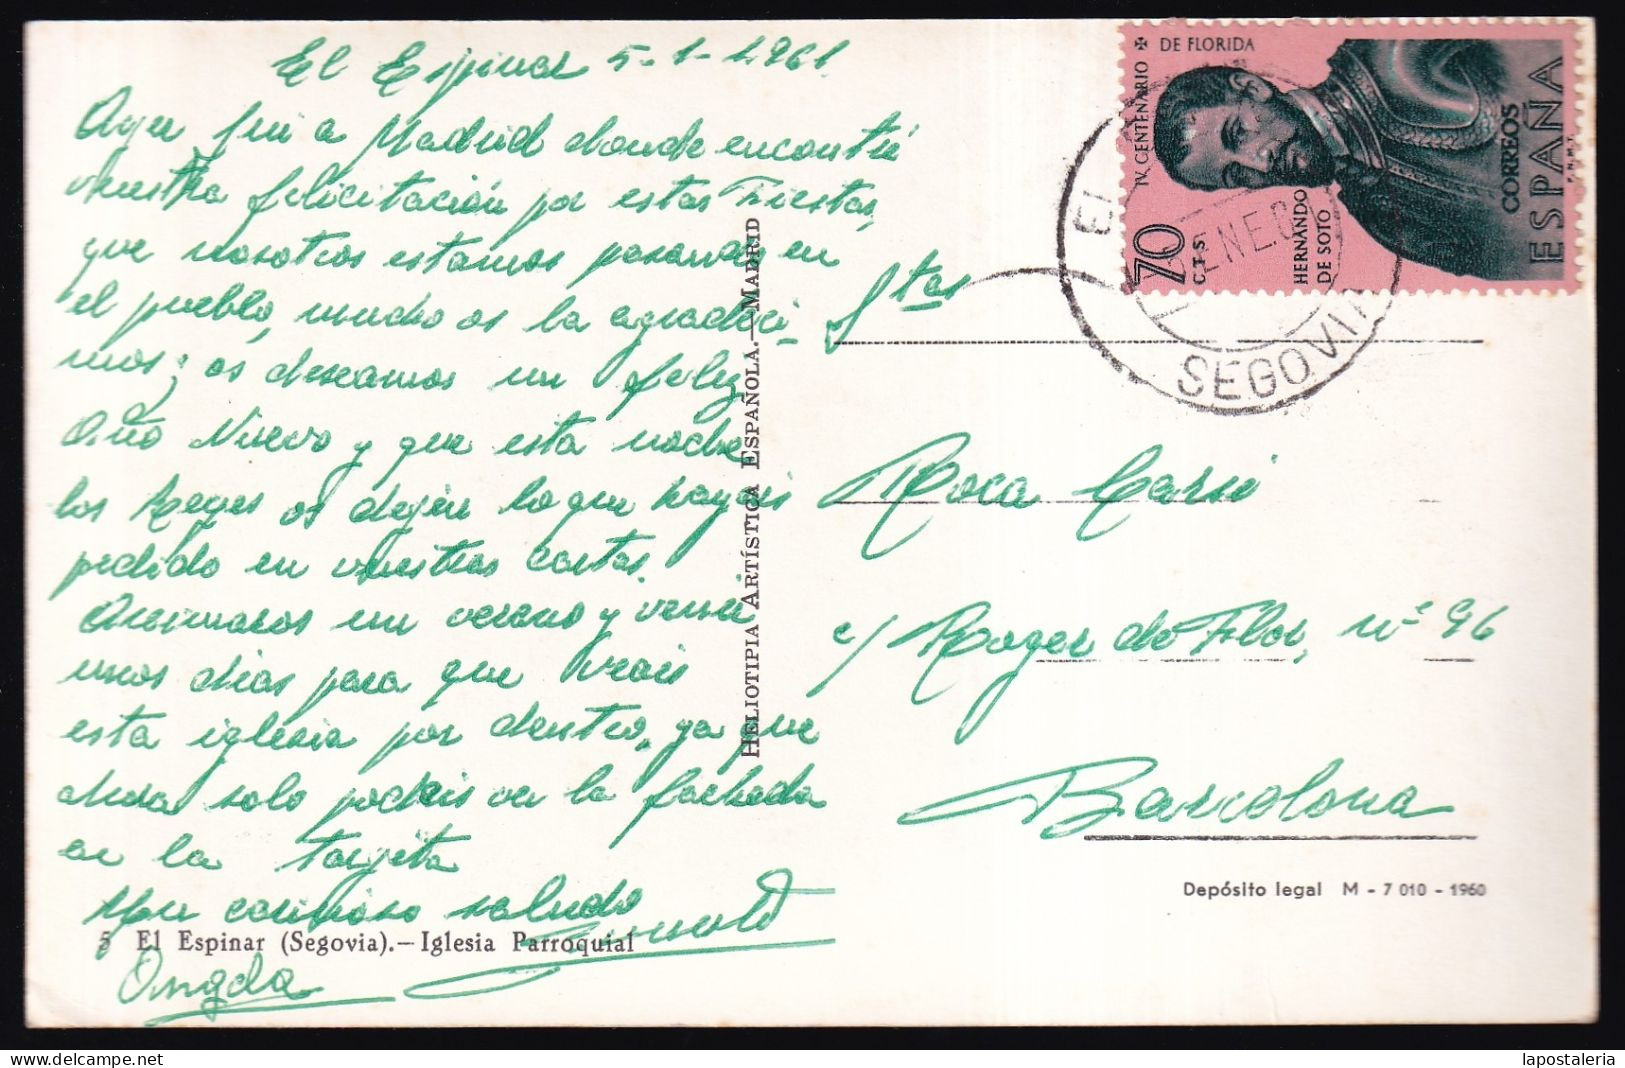 El Espinar 5-1-1961.
Ayer fui a Madrid donde encontré
vuestra felicitación por estas Fiestas,
que nosotros estamos pasando en
el pueblo, mucho os la agradeci-
mos; os deseamos un feliz
Año Nuevo y que esta noche
los Reyes os dejen lo que hayais
pedido en vuestras cartas.
Animaros un verano y venir
unos dias para que veais
esta iglesia por dentro, ya que
ahora solo podeis ver la fachada
en la tarjeta
Un cariñoso saludo
5 El Espinar (Segovia).—Iglesia Parroquial
HELIOTIPIA ARTÍSTICA ESPAÑOLA.—MADRID
IV CENTENARIO DE FLORIDA
70 CTS
HERNANDO
DE SOTO
CORREOS
ESPAÑA
F.N.M.T.
ENE
SEGOVIA
Stas
Roca
c/ Roger de Flor, nº 96
Barcelona
Depósito legal M - 7 010 - 1960
lapostaleria